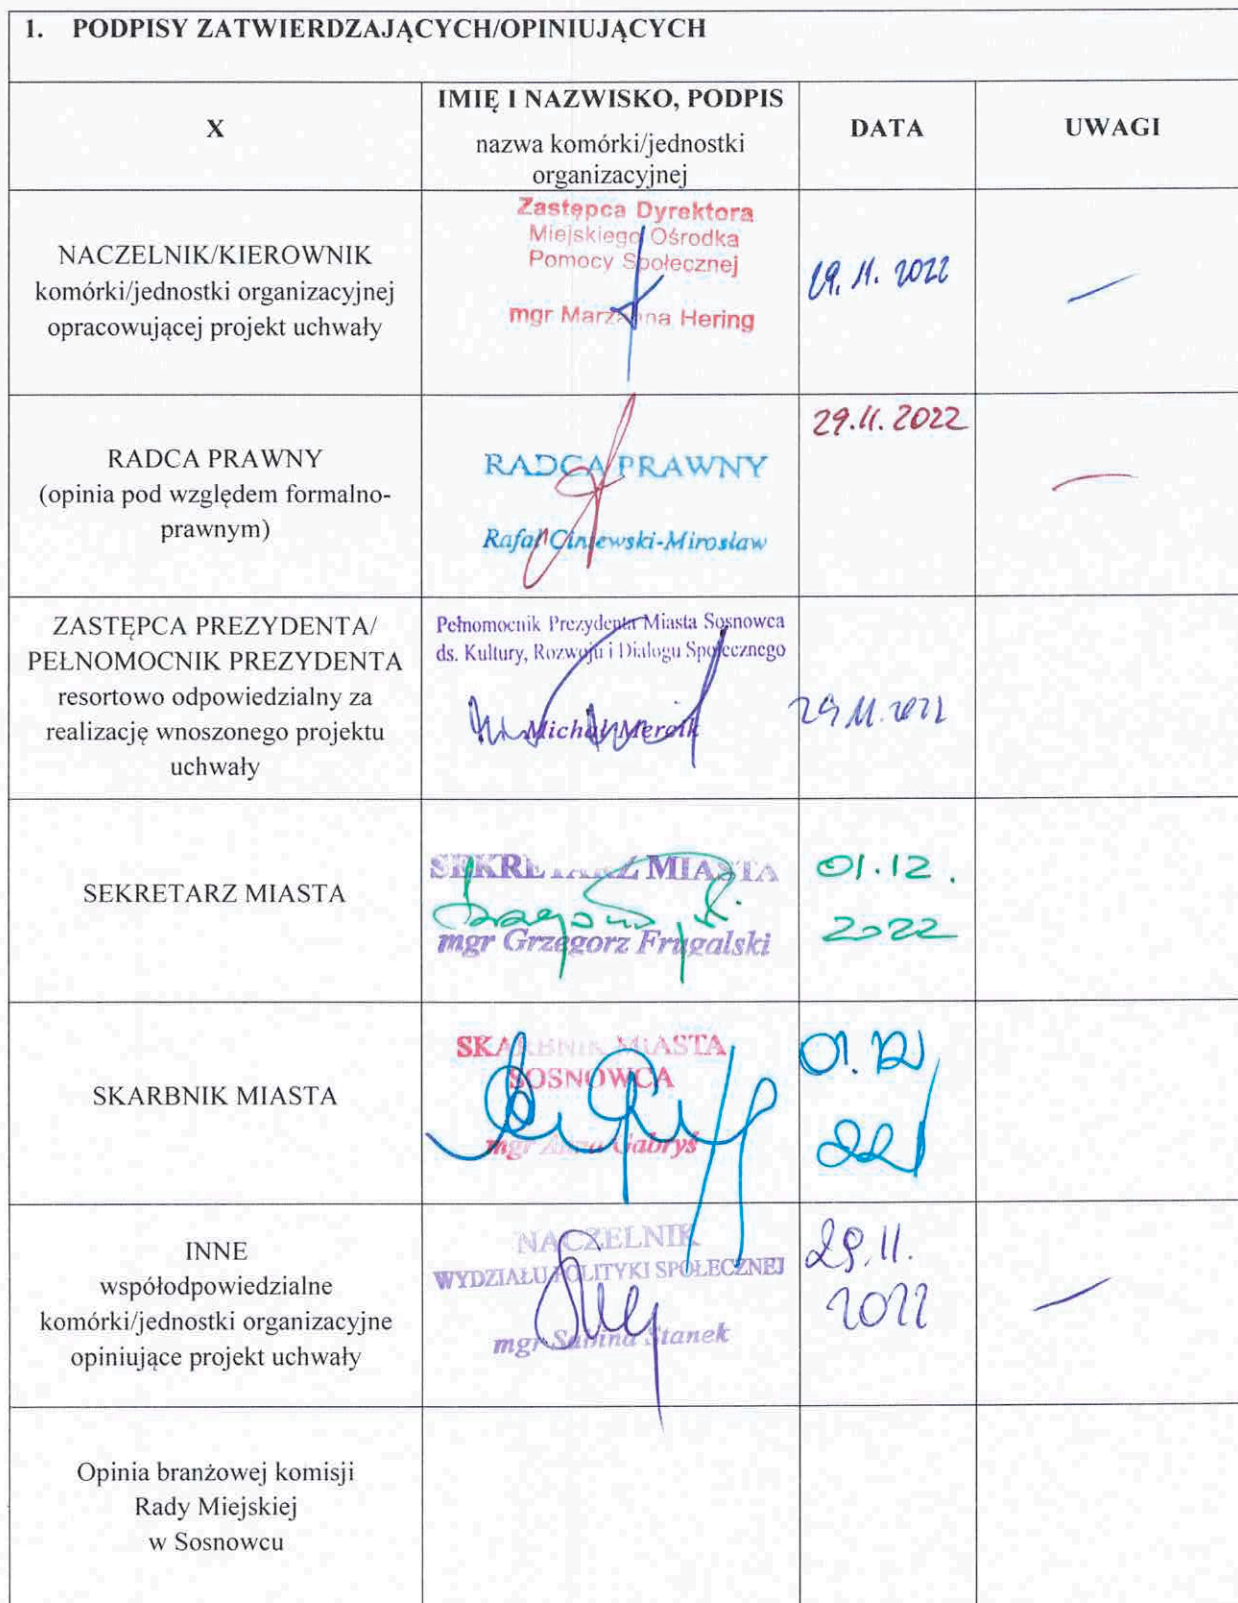 1. PODPISY ZATWIERDZAJĄCYCH/OPINIUJĄCYCH
X
IMIĘ I NAZWISKO, PODPIS
nazwa komórki/jednostki
organizacyjnej
DATA
UWAGI
NACZELNIK/KIEROWNIK
komórki/jednostki organizacyjnej
opracowującej projekt uchwały
Zastępca Dyrektora
Miejskiego Ośrodka
Pomocy Społecznej
mgr Marzanna Hering
29. 11. 2022
RADCA PRAWNY
(opinia pod względem formalno-
prawnym)
RADCA PRAWNY
Rafał Ciniewski-Mirosław
29.11.2022
ZASTĘPCA PREZYDENTA/
PEŁNOMOCNIK PREZYDENTA
resortowo odpowiedzialny za
realizację wnoszonego projektu
uchwały
Pełnomocnik Prezydenta Miasta Sosnowca
ds. Kultury, Rozwoju i Dialogu Społecznego
Michał
29.11.2022
SEKRETARZ MIASTA
SEKRETARZ MIASTA
mgr Grzegorz Frugalski
01.12.
2022
SKARBNIK MIASTA
SKARBNIK MIASTA
SOSNOWCA
mgr Anna Gabryś
01.12
22
INNE
współodpowiedzialne
komórki/jednostki organizacyjne
opiniujące projekt uchwały
NACZELNIK
WYDZIAŁU POLITYKI SPOŁECZNEJ
mgr Sabina Stanek
29.11.
2022
Opinia branżowej komisji
Rady Miejskiej
w Sosnowcu